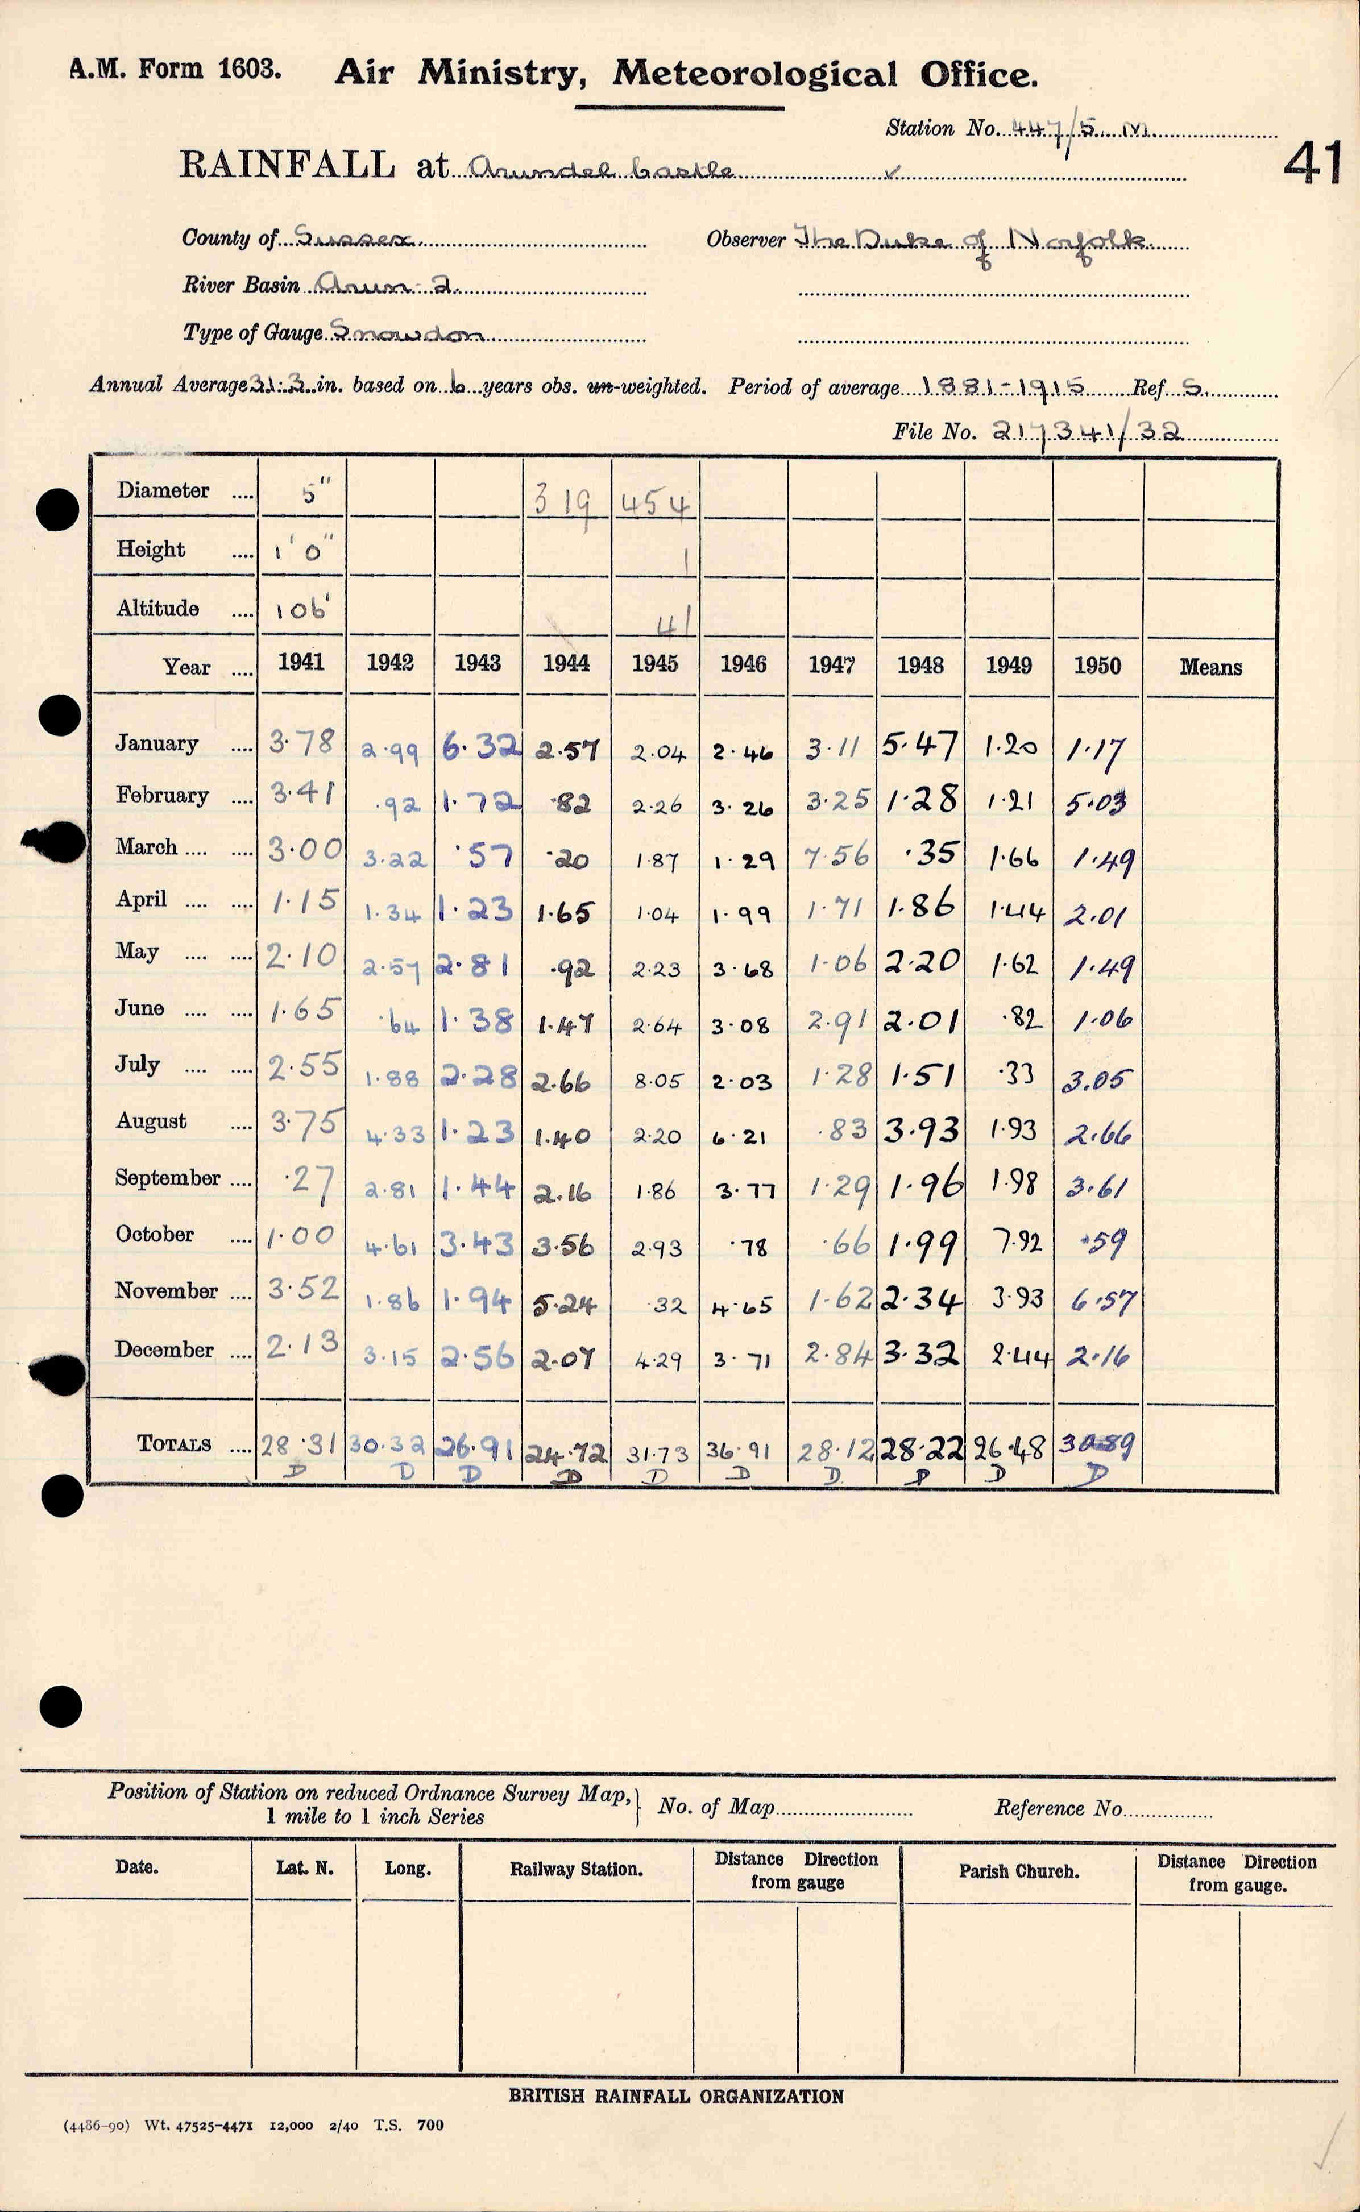 A.M. Form 1603. Air Ministry, Meteorological Office.
Station No. 447/5 M
41
RAINFALL at Arundel Castle ✓
County of Sussex Observer The Duke of Norfolk
River Basin Arun 2
Type of Gauge Snowdon
Annual Average 31.3 in. based on 6 years obs. un-weighted. Period of average 1881-1915 Ref S.
File No. 217341/32
Diameter .... 5" 319 454
Height .... 1'0" 1
Altitude .... 106' 41
Year .... 1941 1942 1943 1944 1945 1946 1947 1948 1949 1950 Means
January .... 3.78 2.99 6.32 2.57 2.04 2.46 3.11 5.47 1.20 1.17
February .... 3.41 .92 1.72 .82 2.26 3.26 3.25 1.28 1.21 5.03
March .... .... 3.00 3.22 .57 .20 1.87 1.29 7.56 .35 1.66 1.49
April .... .... 1.15 1.34 1.23 1.65 1.04 1.99 1.71 1.86 1.44 2.01
May .... .... 2.10 2.57 2.81 .92 2.23 3.68 1.06 2.20 1.62 1.49
June .... .... 1.65 .64 1.38 1.47 2.64 3.08 2.91 2.01 .82 1.06
July .... .... 2.55 1.88 2.28 2.66 8.05 2.03 1.28 1.51 .33 3.05
August .... 3.75 4.33 1.23 1.40 2.20 6.21 .83 3.93 1.93 2.66
September .... .27 2.81 1.44 2.16 1.86 3.77 1.29 1.96 1.98 3.61
October .... 1.00 4.61 3.43 3.56 2.93 .78 .66 1.99 7.92 .59
November .... 3.52 1.86 1.94 5.24 .32 4.65 1.62 2.34 3.93 6.57
December .... 2.13 3.15 2.56 2.07 4.29 3.71 2.84 3.32 2.44 2.16
TOTALS .... 28.31 30.32 26.91 24.72 31.73 36.91 28.12 28.22 26.48 30.89
D D D D D D D D D D
Position of Station on reduced Ordnance Survey Map,
1 mile to 1 inch Series
No. of Map Reference No
Date. Lat. N. Long. Railway Station. Distance Direction from gauge Parish Church. Distance Direction from gauge.
BRITISH RAINFALL ORGANIZATION
(4486-90) Wt. 47525-4471 12,000 2/40 T.S. 700